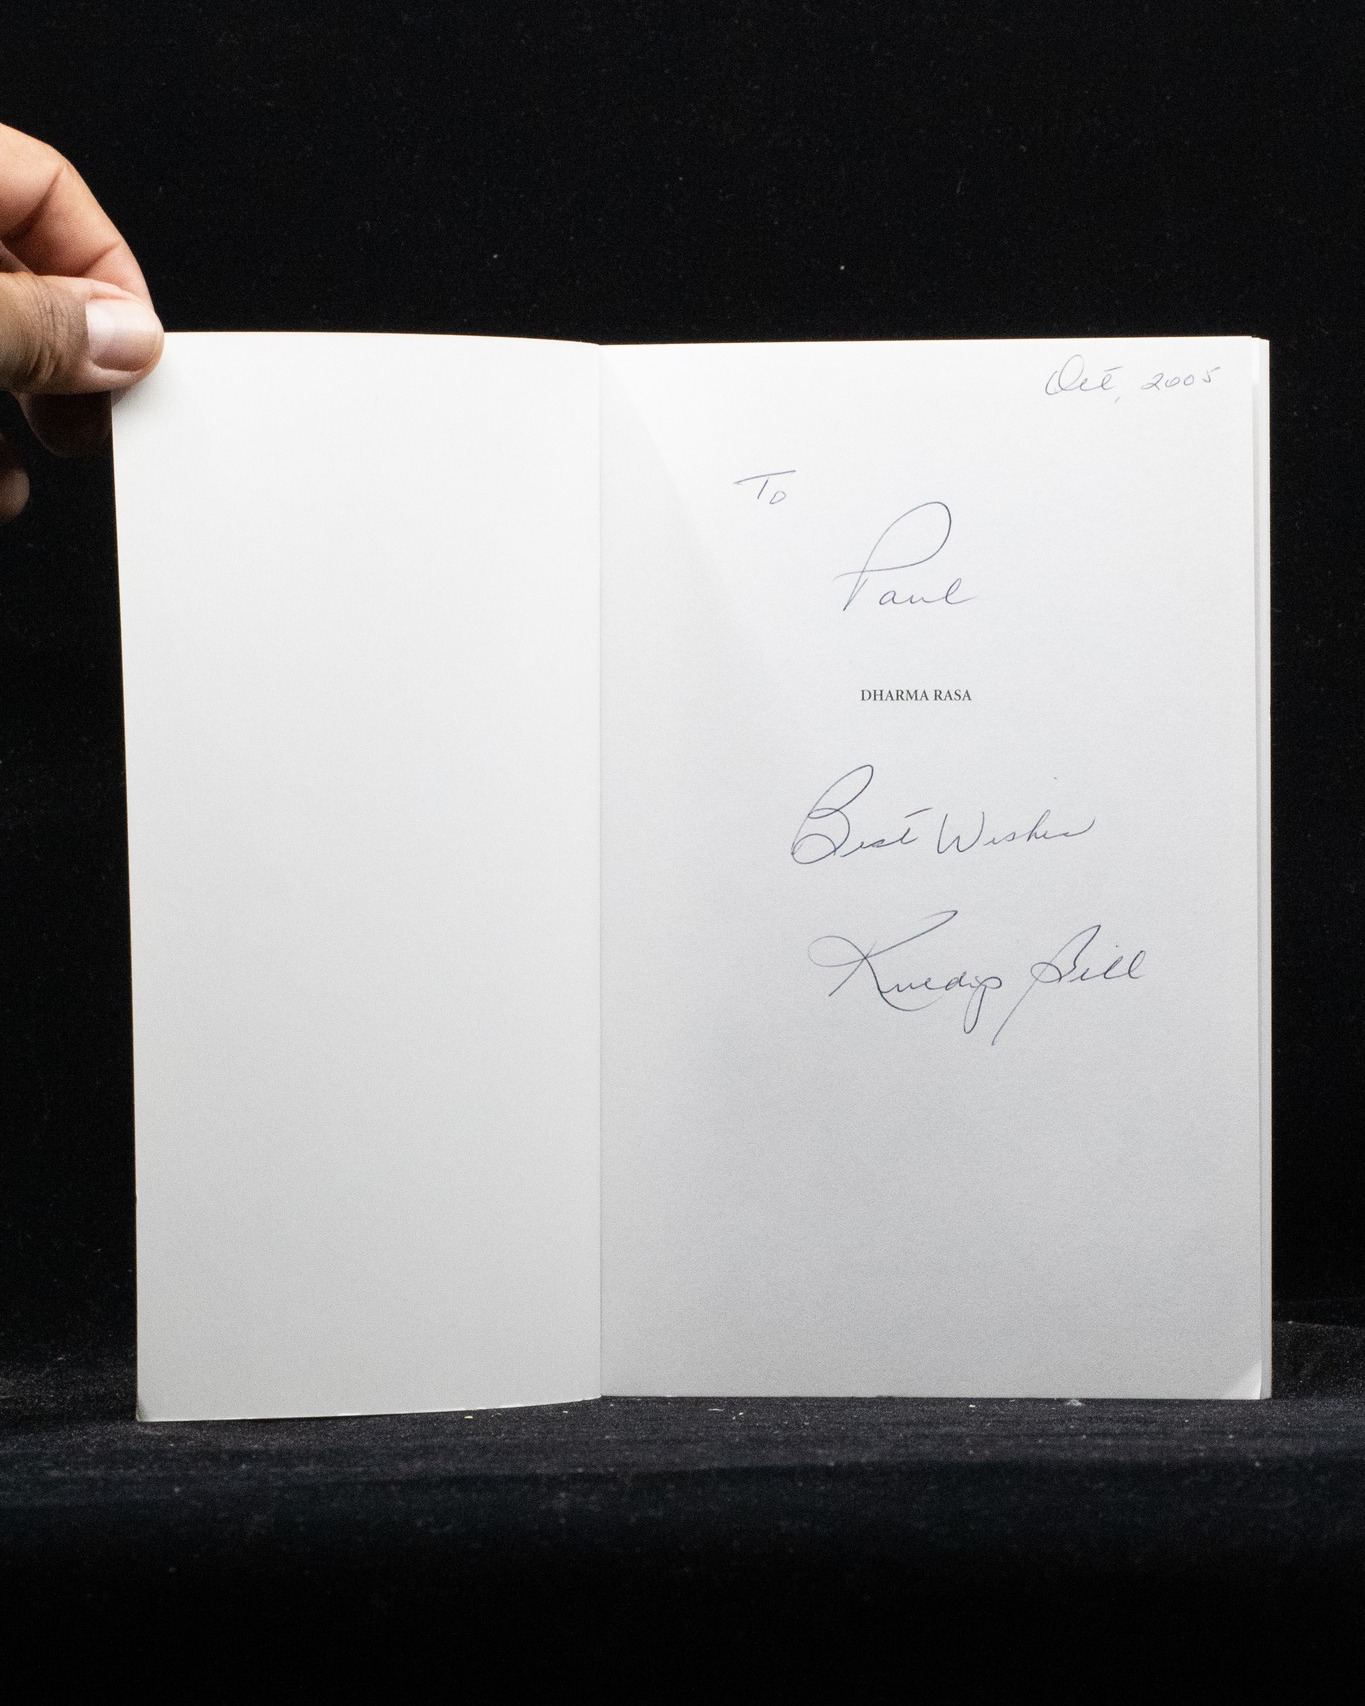 Oct, 2005
To
Paul
DHARMA RASA
Best Wishes
Kuldip Gill